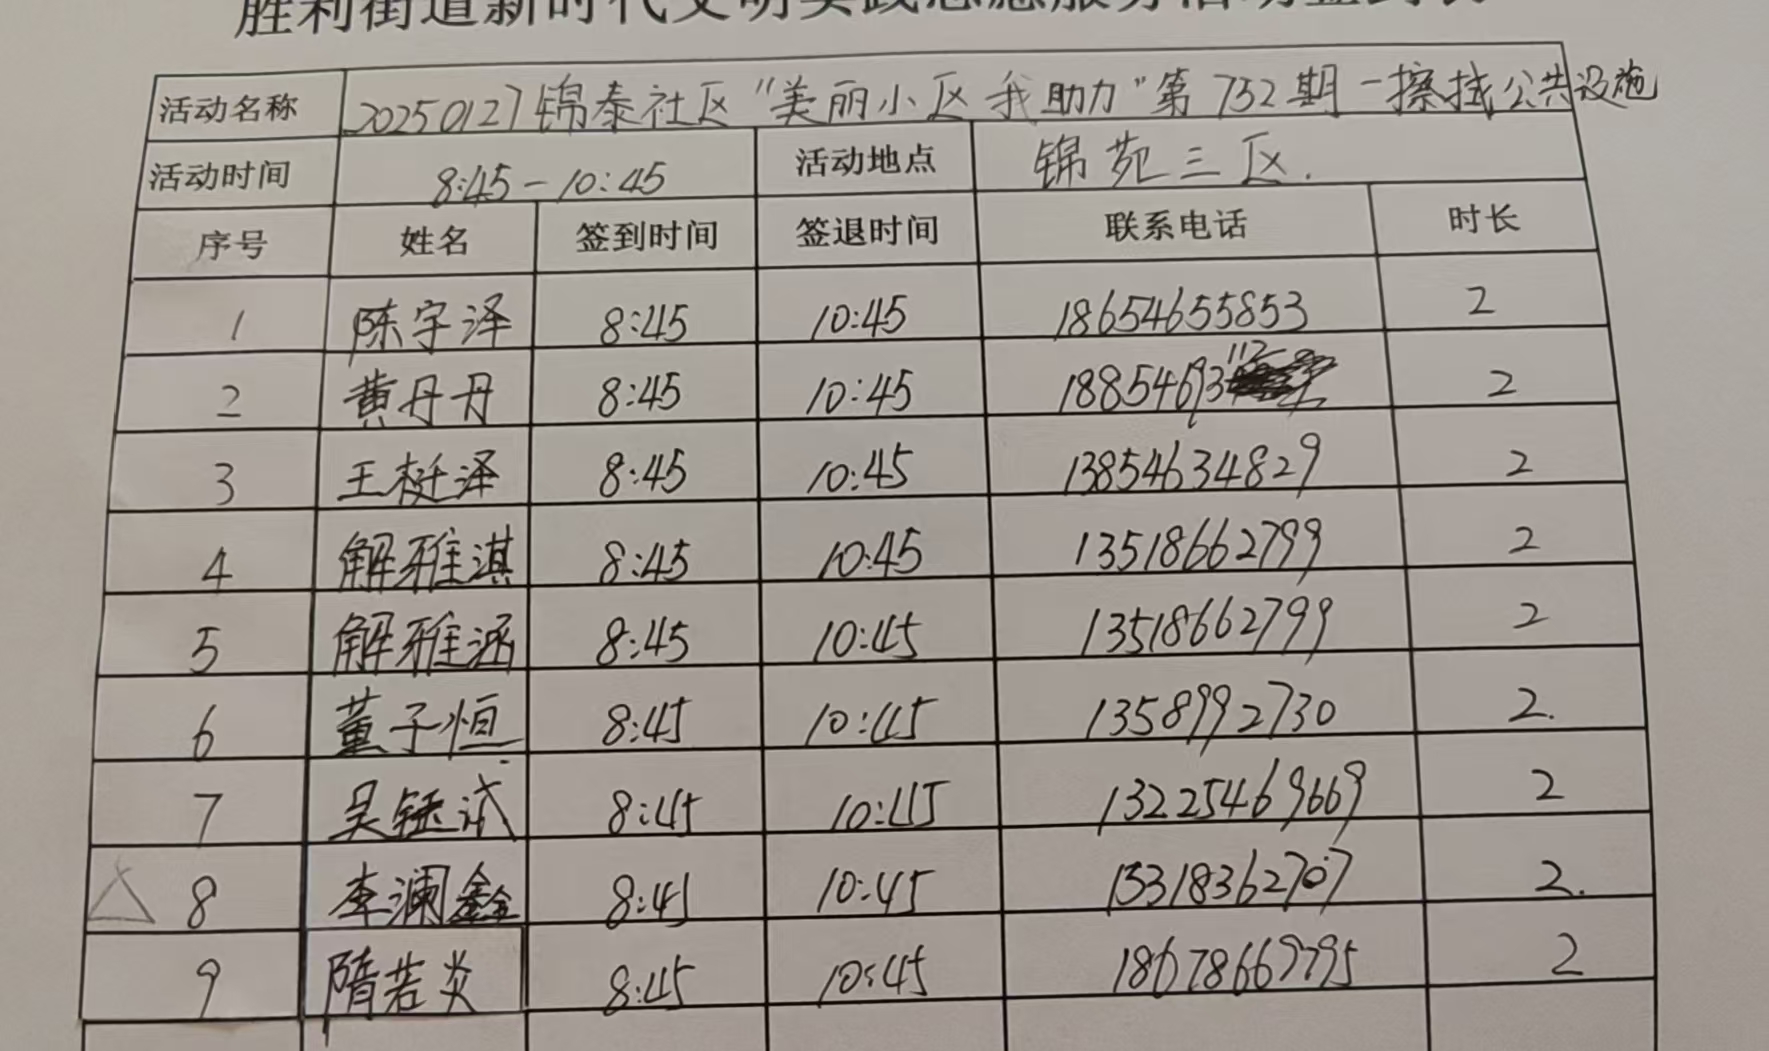 胜利街道新时代文明实践志愿服务活动签到表
活动名称 20250127锦泰社区“美丽小区 我助力”第732期-擦拭公共设施
活动时间 8:45-10:45 活动地点 锦苑三区.
序号 姓名 签到时间 签退时间 联系电话 时长
1 陈宇泽 8:45 10:45 18654655853 2
2 黄丹丹 8:45 10:45 18854693 2
3 王梃泽 8:45 10:45 13854634829 2
4 解雅淇 8:45 10:45 13518662799 2
5 解雅涵 8:45 10:45 13518662799 2
6 董子恒 8:45 10:45 1358992730 2.
7 吴钰 8:45 10:45 13225469669 2
8 李澜鑫 8:45 10:45 15318362707 2.
9 隋若炎 8:45 10:45 18678669795 2